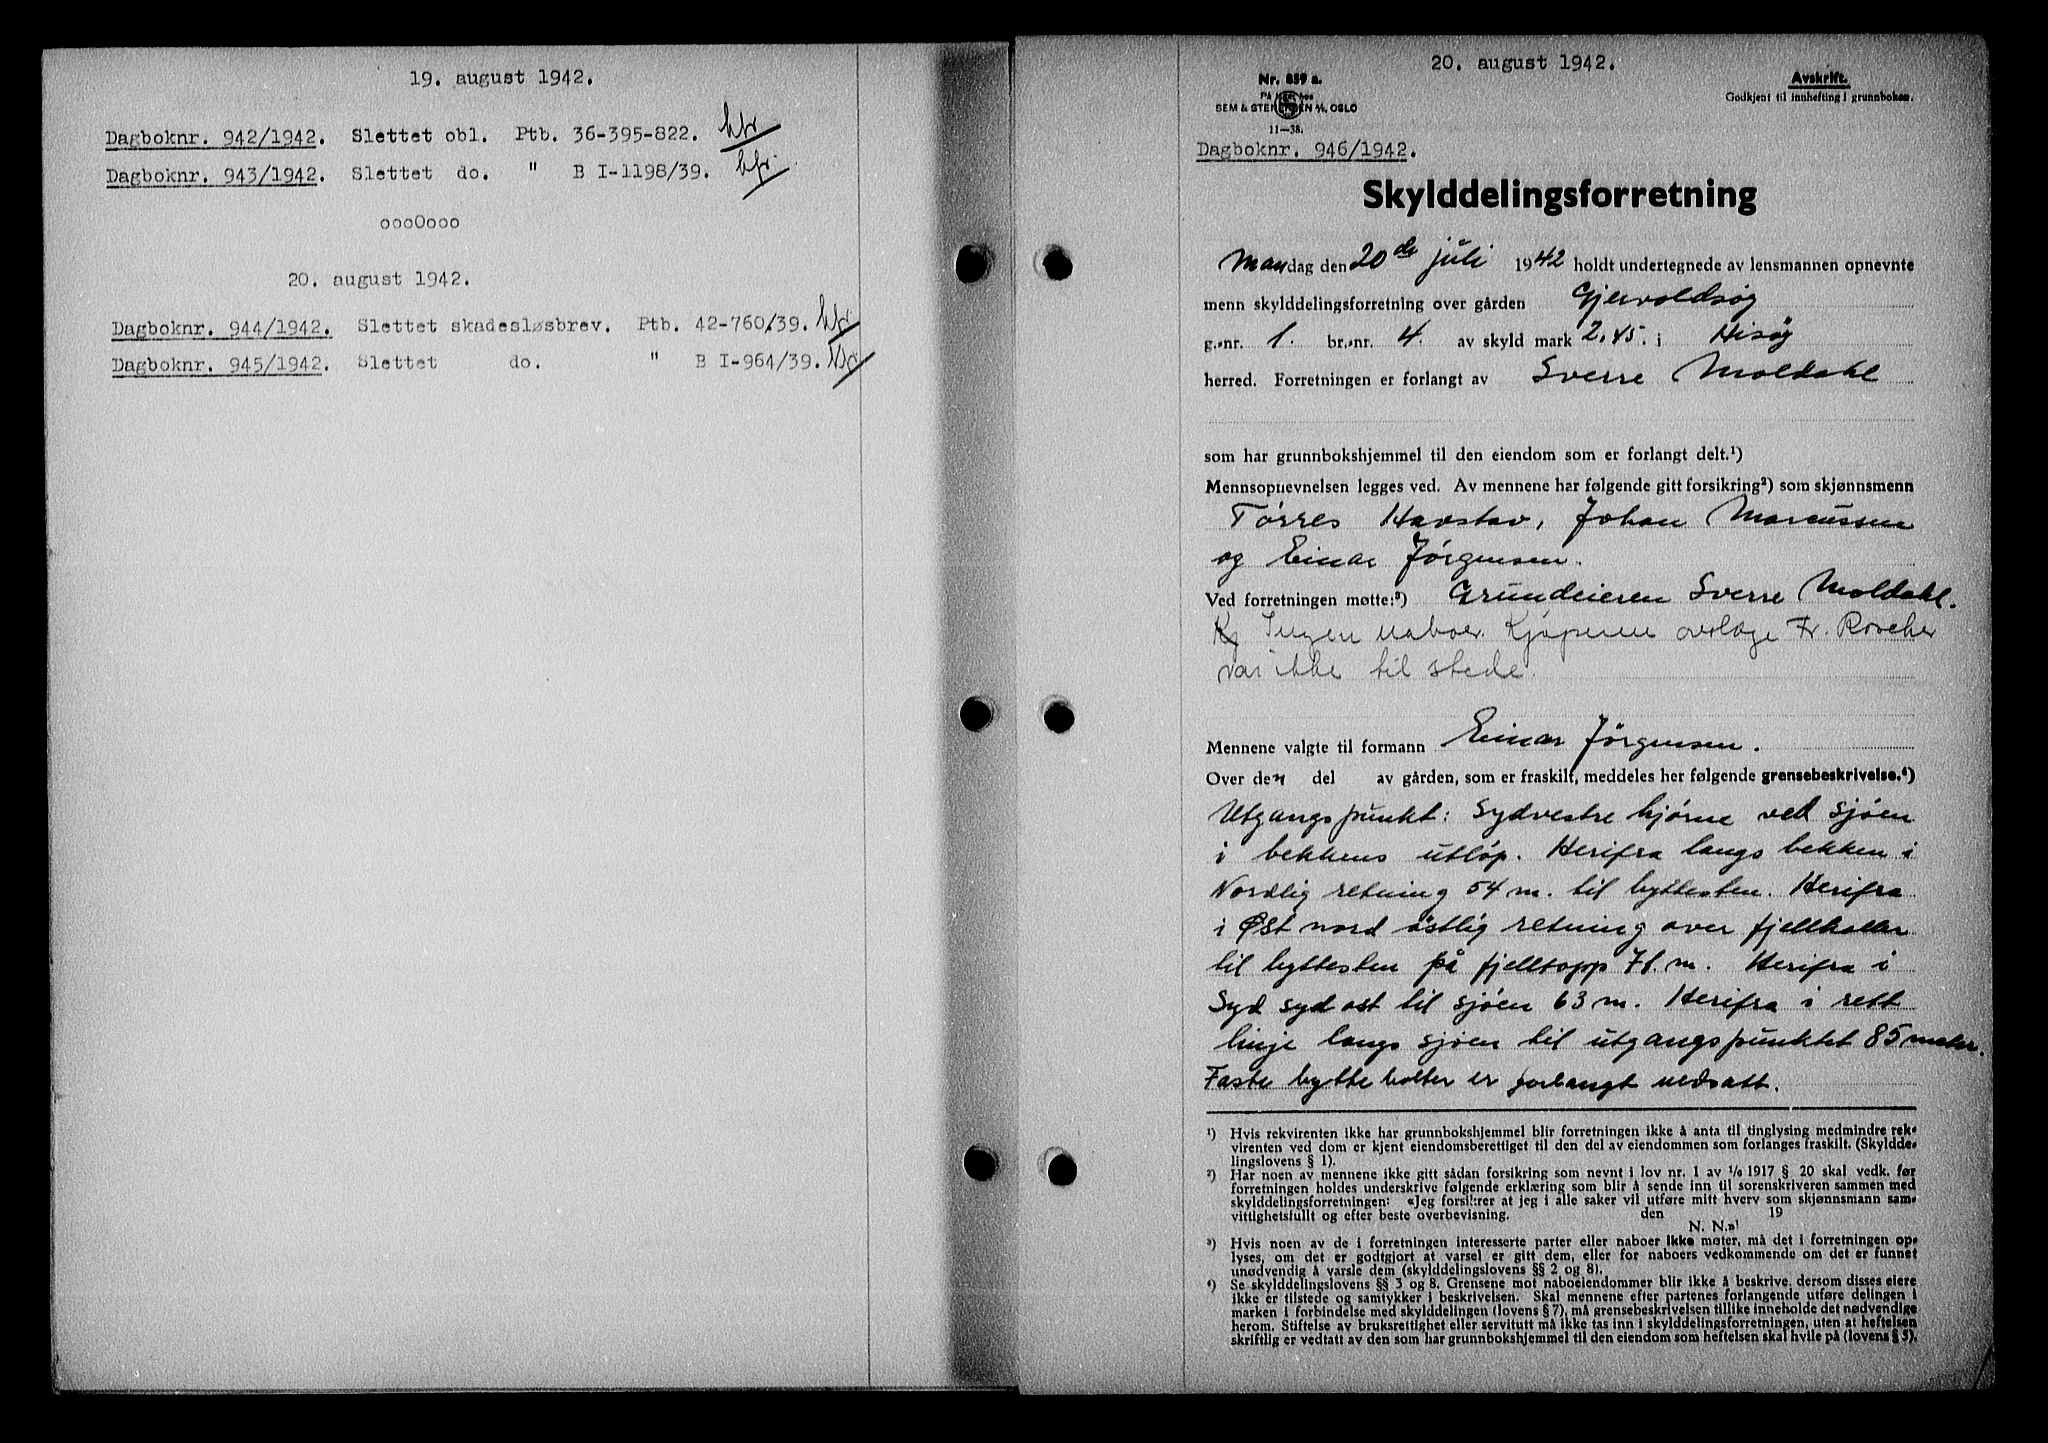 19. august 1942.
Dagboknr. 942/1942. Slettet obl. Ptb. 36-395-822. hfr
Dagboknr. 943/1942. Slettet do. " B I-1198/39. hfr.
oooOooo
20. august 1942.
Dagboknr. 944/1942. Slettet skadesløsbrev. Ptb. 42-760/39. hfr
Dagboknr. 945/1942. Slettet do. " B I-964/39. hfr
20. august 1942.
Nr. 859 a.
På lager hos
SEM & STENERSEN A/S, OSLO
11—38.
Avskrift.
Godkjent til innhefting i grunnboken.
Dagboknr. 946/1942.
Skylddelingsforretning
Mandag den 20de juli 1942 holdt undertegnede av lensmannen opnevnte
menn skylddelingsforretning over gården Gjervoldsøy
g.-nr. 1. br.-nr. 4. av skyld mark 2.45. i Hisøy
herred. Forretningen er forlangt av Sverre Moldahl
som har grunnbokshjemmel til den eiendom som er forlangt delt.¹)
Mennsopnevnelsen legges ved. Av mennene har følgende gitt forsikring²) som skjønnsmenn
Tørres Havstav, Johan Marcussen
og Einar Jørgensen.
Ved forretningen møtte:³) Grundeieren Sverre Moldahl.
Kj Ingen naboer. Kjøperen overlæge Fr. Roscher
var ikke til stede.
Mennene valgte til formann Einar Jørgensen.
Over den del av gården, som er fraskilt, meddeles her følgende grensebeskrivelse.⁴)
Utgangspunkt: Sydvestre hjørne ved sjøen
i bekkens utløp. Herifra langs bekken i
Nordlig retning 54 m. til byttesten. Herifra
i Øst nord østlig retning over fjellkoller
til byttesten på fjelltopp 71. m. Herifra i
Syd syd ost til sjøen 63 m. Herifra i rett
linje langs sjøen til utgangspunktet 85 meter.
Faste bytte bolter er forlangt nedsatt.
¹) Hvis rekvirenten ikke har grunnbokshjemmel blir forretningen ikke å anta til tinglysing medmindre rek-
virenten ved dom er kjent eiendomsberettiget til den del av eiendommen som forlanges fraskilt. (Skyldde-
lingslovens § 1).
²) Har noen av mennene ikke gitt sådan forsikring som nevnt i lov nr. 1 av 1/6 1917 § 20 skal vedk. før
forretningen holdes underskrive følgende erklæring som blir å sende inn til sorenskriveren sammen med
skylddelingsforretningen: «Jeg forsikrer at jeg i alle saker vil utføre mitt hverv som skjønnsmann sam-
vittighetsfullt og efter beste overbevisning. den 19
N. N.»
³) Hvis noen av de i forretningen interesserte parter eller naboer ikke møter, må det i forretningen op-
lyses, om det er godtgjort at varsel er gitt dem, eller for naboers vedkommende om det er funnet
unødvendig å varsle dem (skylddelingslovens §§ 2 og 8).
⁴) Se skylddelingslovens §§ 3 og 8. Grensene mot naboeiendommer blir ikke å beskrive, dersom disses eiere
ikke er tilstede og samtykker i beskrivelsen. Skal mennene efter partenes forlangende utføre delingen i
marken i forbindelse med skylddelingen (lovens § 7), må grensebeskrivelsen tillike inneholde det nødvendige
herom. Stiftelse av bruksrettighet eller servitutt må ikke tas inn i skylddelingsforretningen, uten at heftelsen
skriftlig er vedtatt av den som har grunnbokshjemmel til den eiendom som heftelsen skal hvile på (lovens § 5).